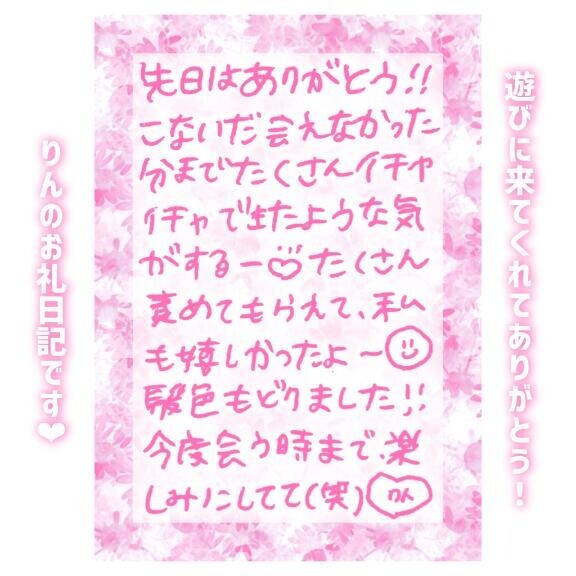 遊びに来てくれてありがとう!
先日はありがとう!!
こないだ会えなかった
分までたくさんイチャ
イチャできたような気
がするー♡たくさん
責めてもらえて、私
も嬉しかったよ～☺
髪色もどりました!!
今度会う時まで、楽
しみにしてて(笑)りん
りんのお礼日記です❤